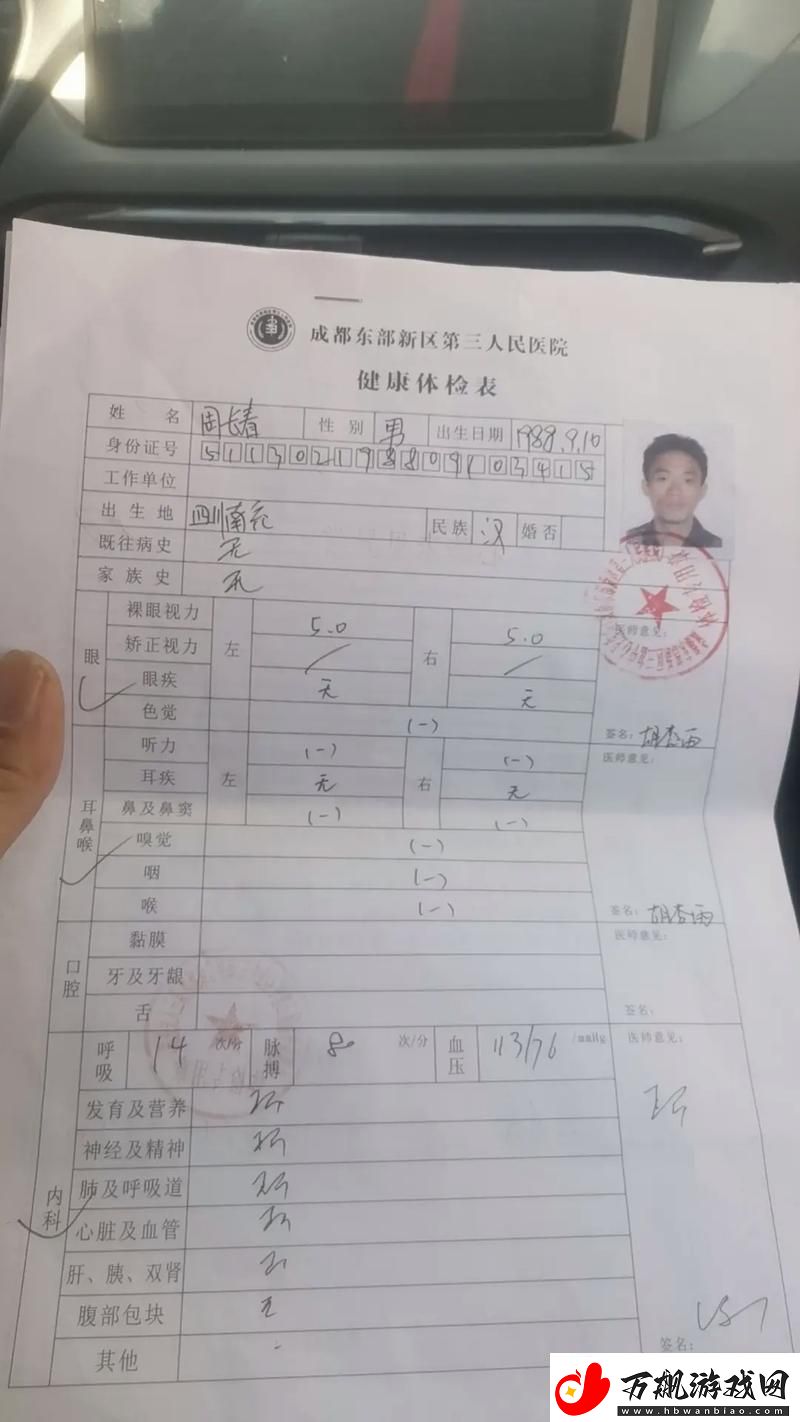 成都东部新区第三人民医院
健康体检表
姓名 周长春 性别 男 出生日期 1988.9.10
身份证号
工作单位
出生地 四川南充 民族 汉 婚否
既往病史 无
家族史 无
眼 裸眼视力 左 5.0 右 5.0 医师意见:
矫正视力 / /
眼疾 无 无
色觉 (-) 签名: 胡杏雨
耳鼻喉 听力 左 (-) 右 (-) 医师意见:
耳疾 无 无
鼻及鼻窦 (-) (-)
嗅觉 (-)
咽 (-)
喉 (-) 签名: 胡杏雨
口腔 黏膜 医师意见:
牙及牙龈
舌 签名:
内科 呼吸 14 次/分 脉搏 80 次/分 血压 113/76 /mmHg 医师意见:
发育及营养
神经及精神
肺及呼吸道
心脏及血管
肝、胰、双肾
腹部包块 无
其他 -
签名:
万飙游戏网
www.hbwanbiao.com